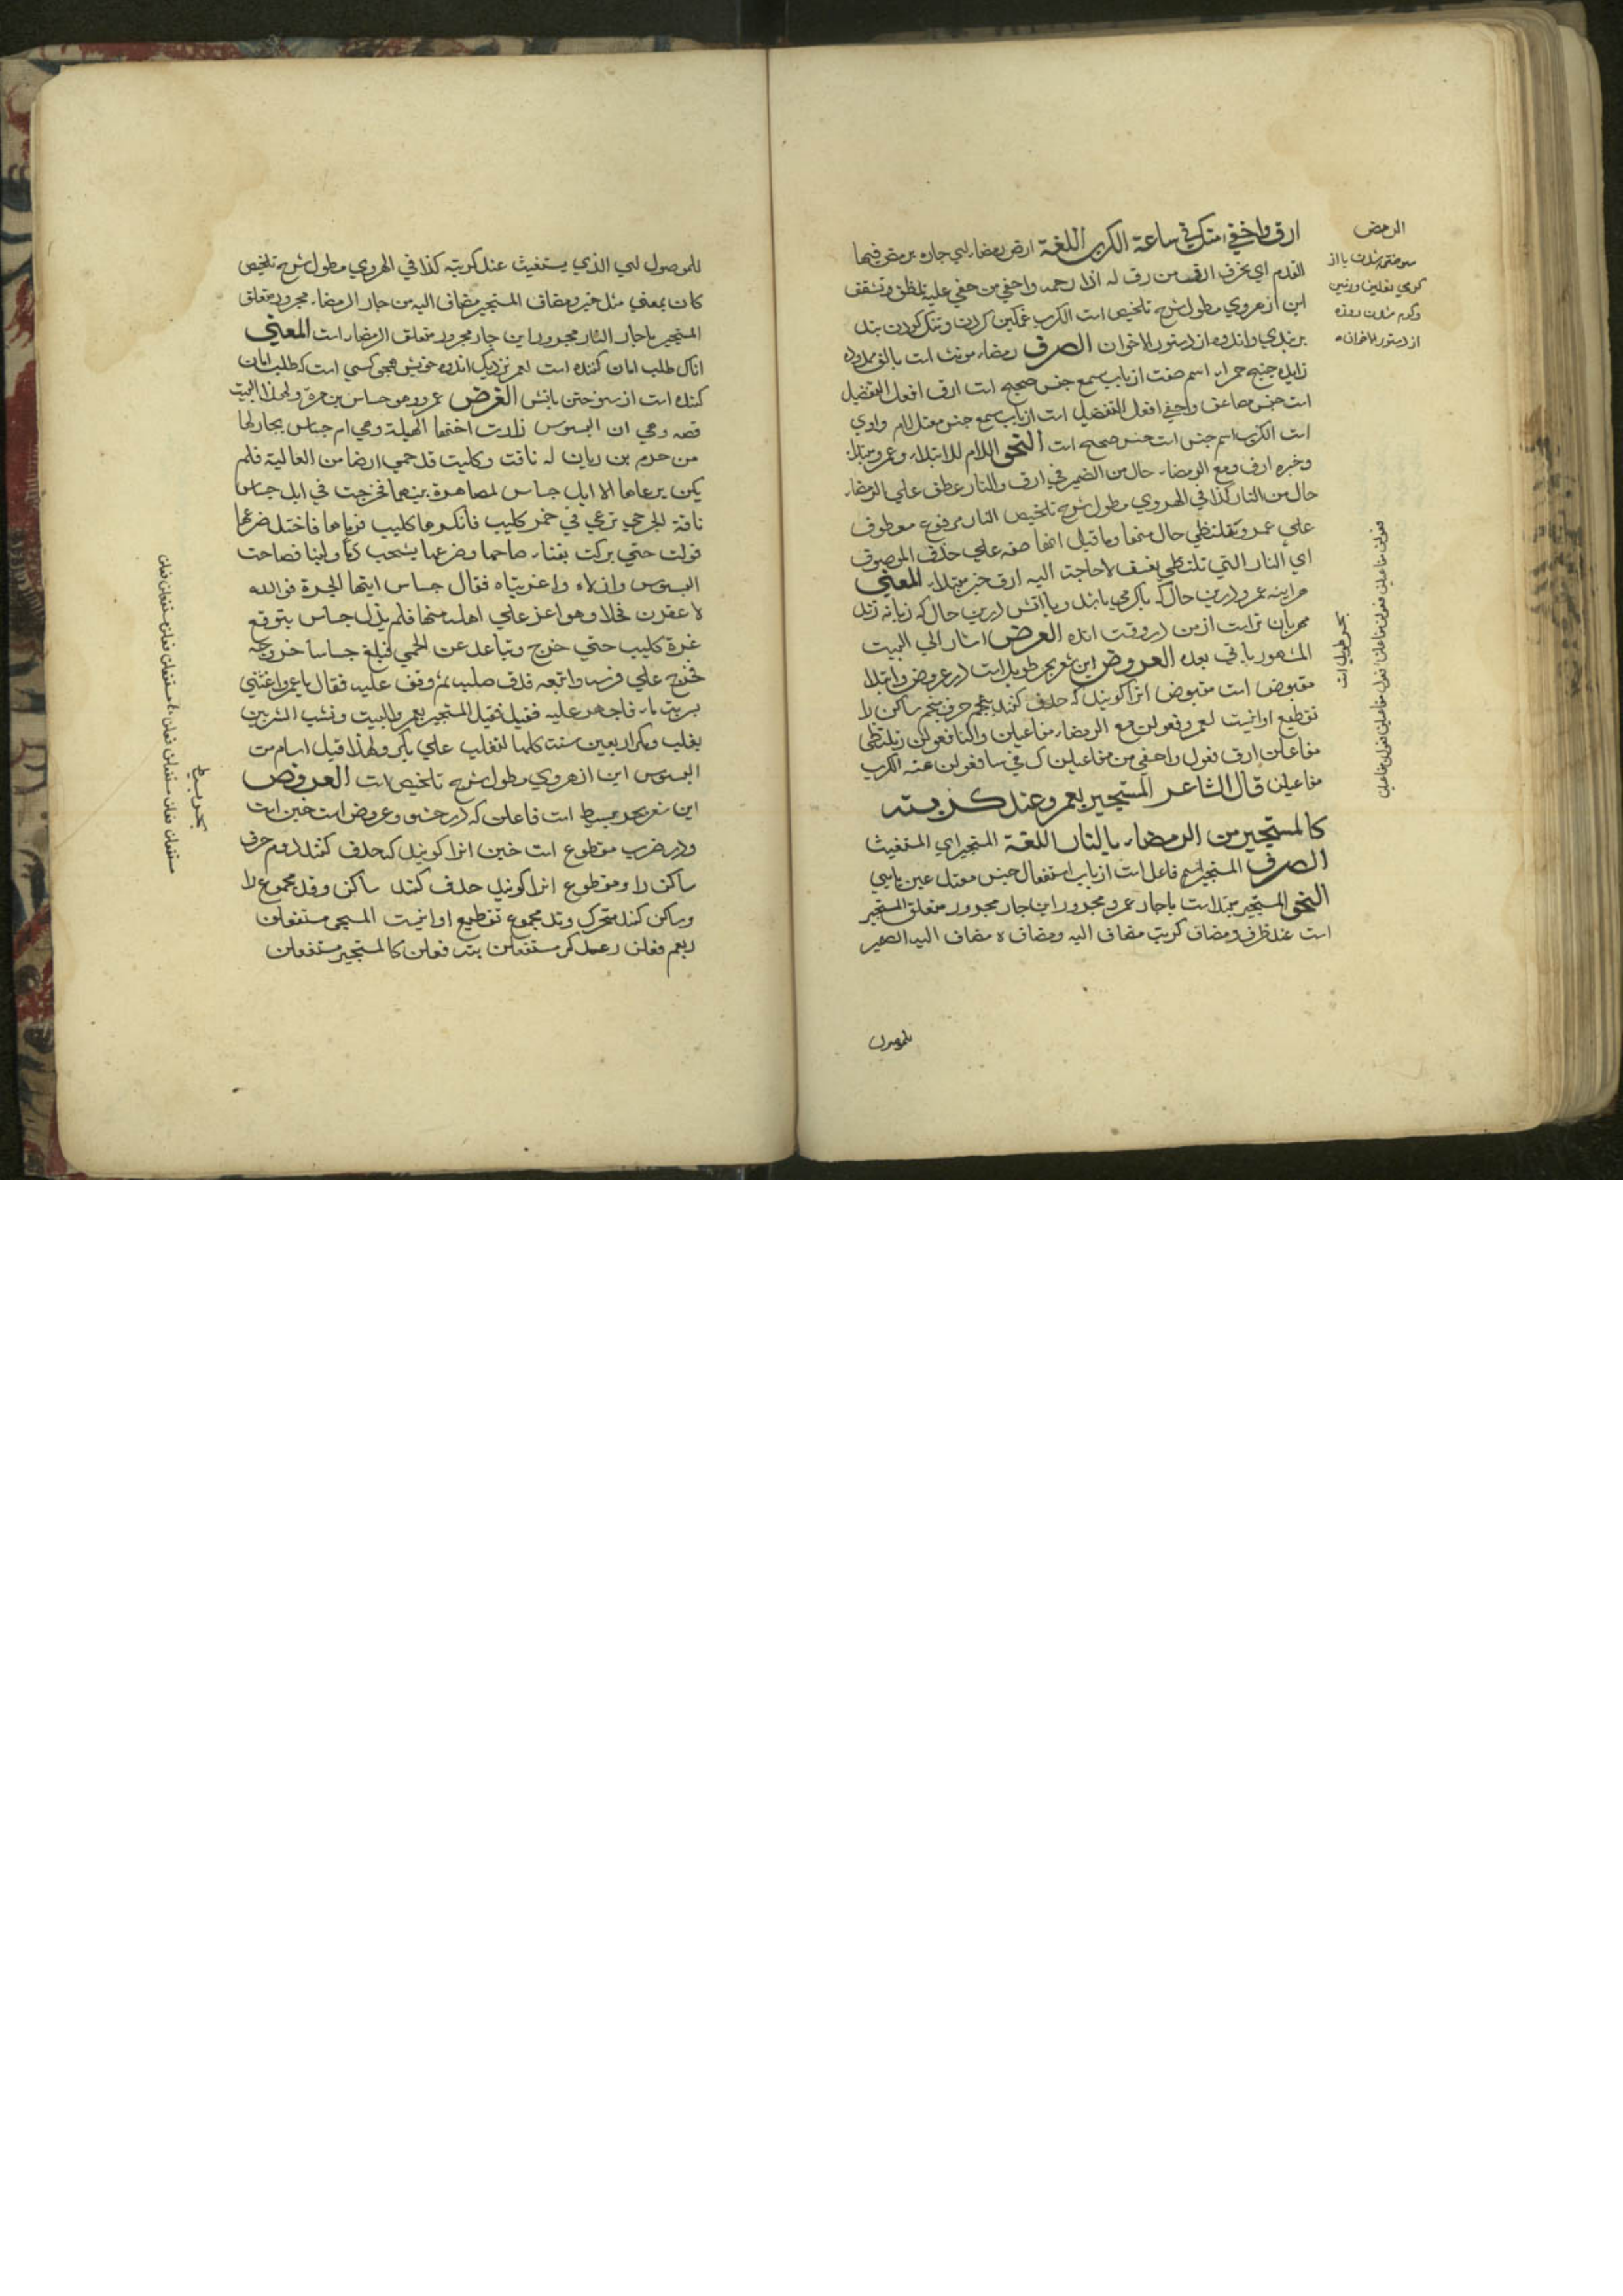 ارق واخفي منك في ساعة الكرب اللغة ارض رمضاء اي حاره يرمض فيها
القدم اي يحرق الرقة من رق له اذا رحمه واحفي من حفي عليه تلطف وتشفق
اين از هروي مطول شرح تلخيص است الكرب غمكين كردن وتنك كردن بند
بر بندي واندوه از دستور الاخوان الصرف رمضاء مونث است بالف ممدوده
زايده جنبه حمراء اسم صفت از باب سمع جنس صحيح است ارق افعل التفضيل
است جنس مضاعف واحفي افعل التفضيل است از باب سمع جنس معتل لام واوي
است الكرب اسم جنس است جنس صحيح است النحو اللام للابتداء وعمرو مبتداء
وخبره ارق ومع الرمضاء حال من الضمير في ارق والنار عطف علي الرمضاء
حال من النار كذا في الهروي مطول شرح تلخيص النار مرفوع معطوف
علي عمرو وتلتظي حال منها وما قيل انها صفه علي حذف الموصوف
اي النار التي تلتظي تعسف لا حاجت اليه ارق خبر مبتداء المعني
هراينه عمرو درين حال كه باكرمي باشد وبا اتش درين حال كه زبانه زند
مهربان تراست از من در وقت انده الغرض اشار الي البيت
المشهور ياتي بعده العروض اين شعر بحر طويل است در عروض وابتدا
مقبوض است مقبوض انرا كويند كه حذف كنند پنجم حرف پنجم ساكن را
تقطيع او اينست لعمرو فعولن مع الرمضاء مفاعيلن والنا فعولن رتلتظي
مفاعلن ارق فعول واحفي من مفاعيلن ك في سا فعولن عته الكرب
مفاعيلن قال الشاعر المستجير بعمرو عند كربته
كالمستجير من الرمضاء بالنار اللغة المستجير اي المستغيث
الصرف المستجير اسم فاعل است از باب استفعال جنس معتل عين يايي
النحو المستجير مبتدا است با جار عمرو مجرور اين جار مجرور متعلق المستجير
است عند ظرف ومضاف كربت مضاف اليه ومضاف ه مضاف اليه الضمير
للموصول
الرمض
سوخته شدن پا از
كرمي نعلين وزمين
وكرم شدن روزه
از دستور الاخوان
بحر طويل است
فعولن مفاعيلن فعولن مفاعلن فعول مفاعيلن فعولن مفاعيلن
للموصول اي الذي يستغيث عند كربته كذا في الهروي مطول شرح تلخيص
كاف بمعني مثل خبر ومضاف المستجير مضاف اليه من جار الرمضاء مجرور متعلق
المستجير با جار النار مجرور اين جار مجرور متعلق الرمضاء است المعني
انك طلب امان كننده است بعمرو نزديك اندوه خويش همچو كسي است كه طلب امان
كننده است از سوختن باتش الغرض عمرو وهو جساس بن مرة ولهذا البيت
قصه وهي ان البسوس زارت اختها الهيلة وهي ام جساس بجار لها
من جرم بن ريان له ناقت وكليب قد حمي ارضا من العالية فلم
يكن يرعاها الا ابل جساس لمصاهرة بينهما فخرجت في ابل جساس
ناقة الجرمي ترعي في حمي كليب فانكرها كليب فرماها فاختل ضرعها
فولت حتي بركت بفناء صاحبها وضرعها يشخب دما ولبنا فصاحت
البسوس واذلاه واغربتاه فقال جساس ايتها الحرة فوالله
لاعقرن فحلا وهو اعز علي اهله منها فلم يزل جساس يتوقع
غرة كليب حتي خرج وتباعد عن الحمي فبلغ جساسا خروجه
فخرج علي فرسه واتبعه فدق صلبه ثم وقف عليه فقال يا عمرو اغثني
بشربت ماء فاجهز عليه فقيل فقيل المستجير بعمرو البيت ونشب الشر بين
تغلب وبكر اربعين سنت كلها لتغلب علي بكر ولهذا قيل اشام من
البسوس اين از هروي مطول شرح تلخيص است العروض
اين شعر بحر بسيط است فاعلن كه در حشو وعروض است خبن است
ودر ضرب مقطوع است خبن انرا كويند كه حذف كنند دوم حرف
ساكن را ومقطوع انرا كويند حذف كنند ساكن وتد مجموع را
وساكن كنند متحرك وتد مجموع تقطيع او اينست المستجي مستفعلن
ربعم فعلن رعند كر مستفعلن بته فعلن كالمستجير مستفعلن
بحر بسيط
مستفعلن فعلن مستفعلن فعلن مستفعلن فعلن مستفعلن فعلن